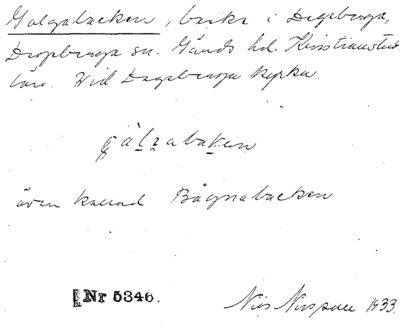 Galgabacken, backe i Degeberga,
Degeberga sn. Gärds hd. Kristianstads
län. Vid Degeberga kyrka.
gàlʒabaken
även kallad Bågnabacken
Nr 5346.
Nils Nilsson 1933.